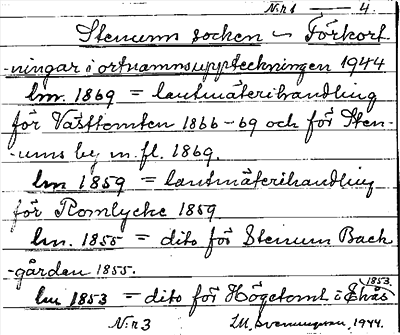 N:r 1 — 4.
Stenums socken — Förkort
-ningar i ortnamnsuppteckningen 1944
lm. 1869 = lantmäterihandling
för Västtomten 1866-69 och för Sten-
-ums by m. fl. 1869.
lm 1859 = lantmäterihandling
för Romlycke 1859
lm. 1855 = dito för Stenum Back
-gården 1855.
lm 1853 = dito för Högetomt i 1853.
N:r 3 Svenungsson, 1944.